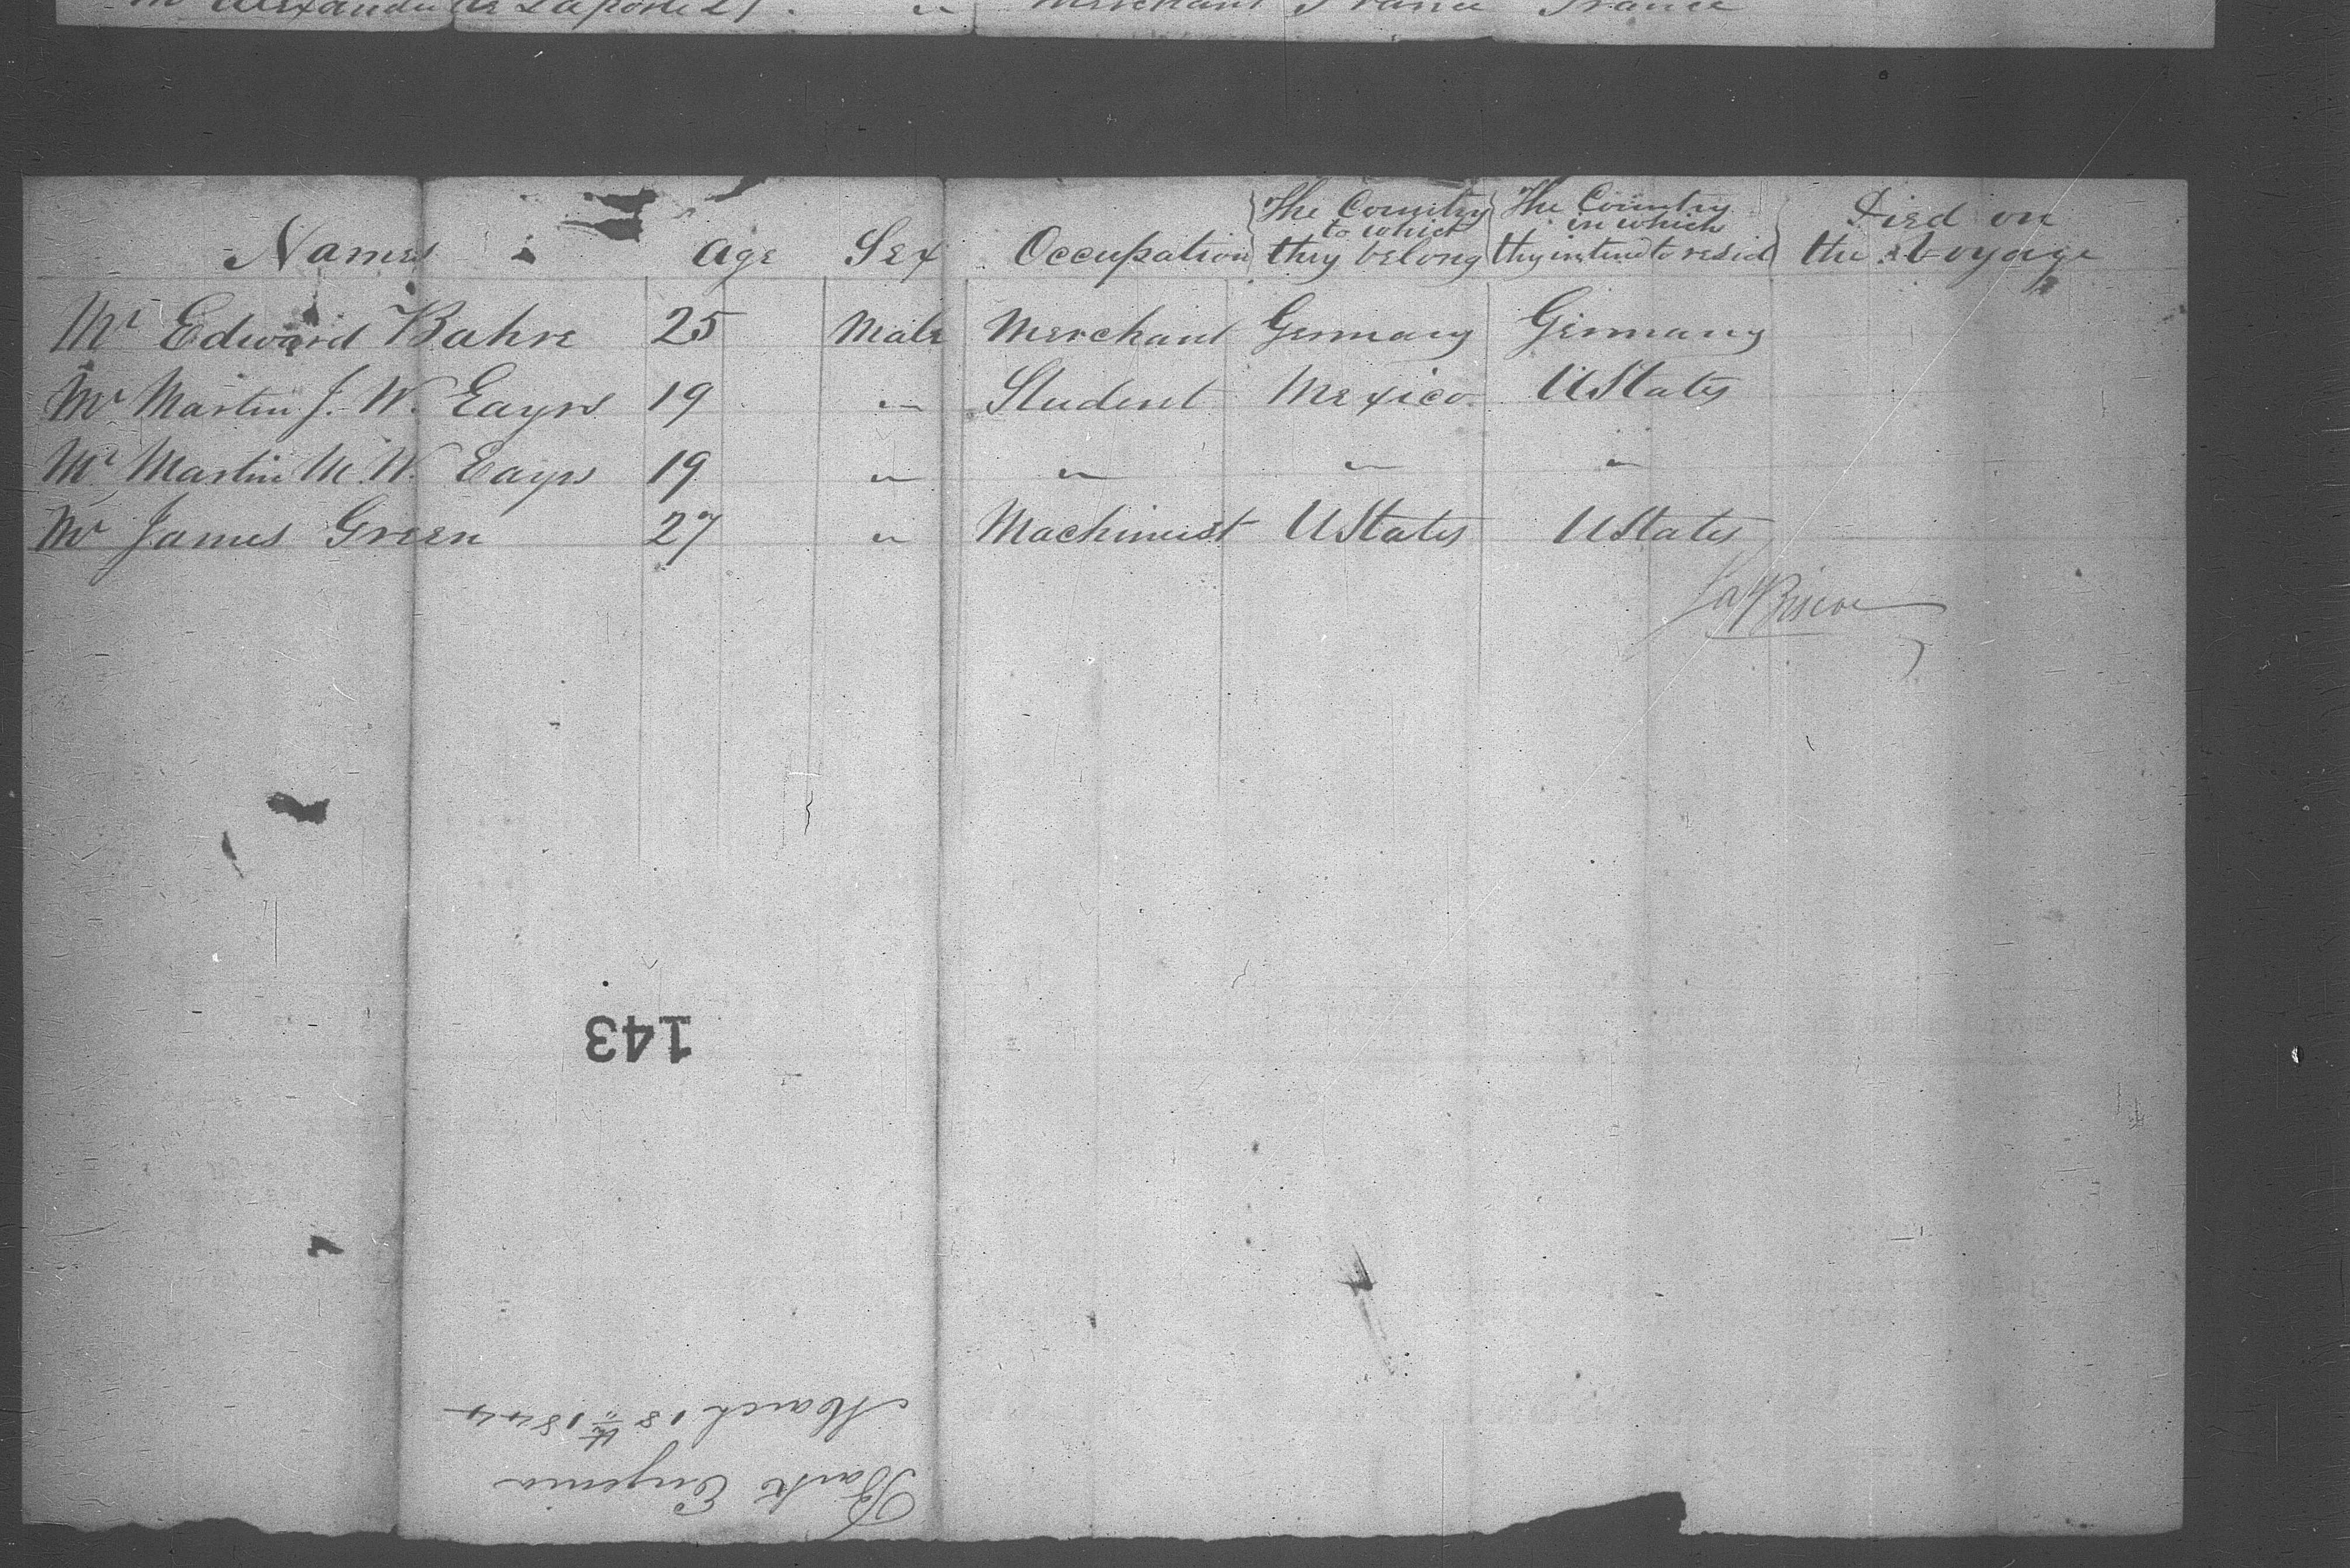 Mr Alexander de Laporte 27 " Merchant France France
Names Age Sex Occupation The Country to which they belong The Country in which they intend to resid Died on the Voyage
Mr Edward Bahre 25 Male Merchant Germany Germany
Mr Martin J. W. Eayrs 19 " Student Mexico UStates
Mr Martin M. W. Eayrs 19 " " " "
Mr James Green 27 " Machinist UStates UStates
143
Bark Eugenia
March 18th 1844